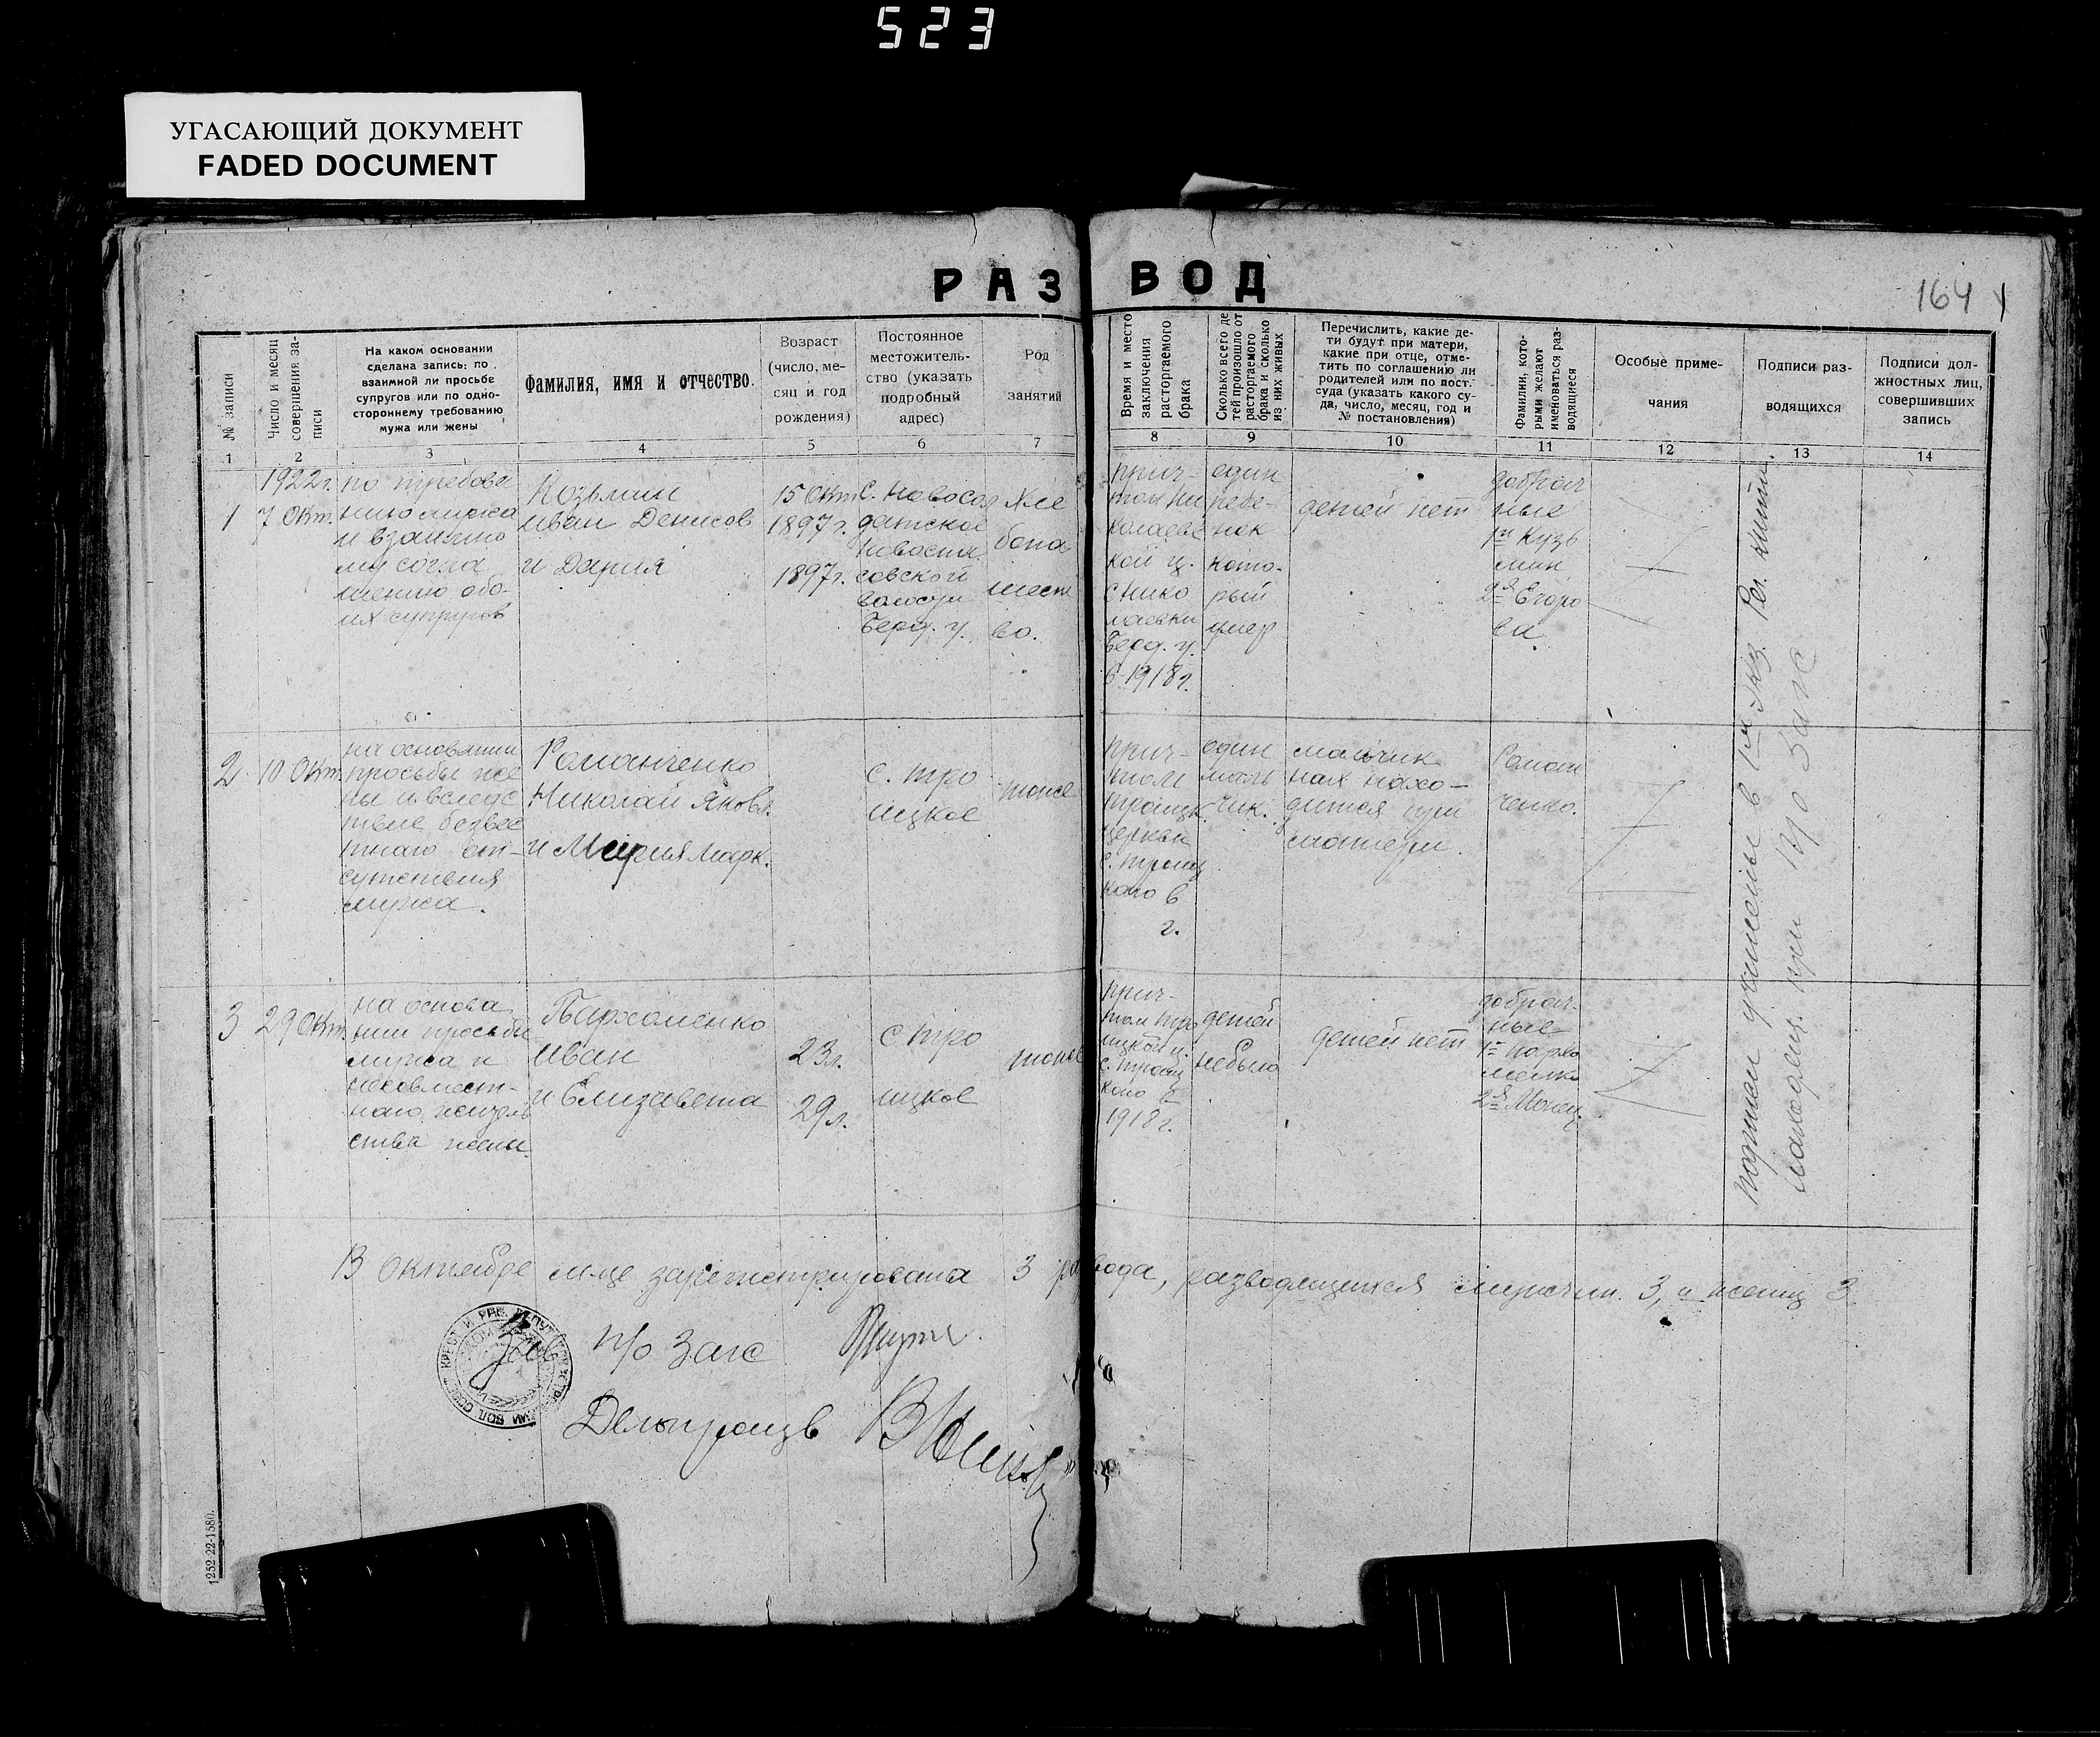 523
УГАСАЮЩИЙ ДОКУМЕНТ
FADED DOCUMENT
РАЗВОД
164
№ записи
Число и месяц
совершения за-
писи
На каком основании
сделана запись: по
взаимной ли просьбе
супругов или по одно-
стороннему требованию
мужа или жены
Фамилия, имя и отчество.
Возраст
(число, ме-
сяц и год
рождения)
Постоянное
местожитель-
ство (указать
подробный
адрес)
Род
занятий
Время и место
заключения
расторгаемого
брака
Сколько всего де
тей произошло от
расторгаемого
брака и сколько
из них живых
Перечислить, какие де-
ти будут при матери,
какие при отце, отме-
тить по соглашению ли
родителей или по пост.
суда (указать какого су-
да, число, месяц, год и
№ постановления)
Фамилии, кото-
рыми желают
именоваться раз-
водящиеся
Особые приме-
чания
Подписи раз-
водящихся
Подписи дол-
жностных лиц,
совершивших
запись
1 2 3 4 5 6 7 8 9 10 11 12 13 14
1
1922г.
7 Окт.
по требова
нию мужа
и взаимно
му согла
шению обо-
их супругов
Козьмин
Иван Денисов
и Дария
15 Окт
1897г.
1897г.
с. Новосол
датское
Новоспа
совской
волости
Берд. у.
Хле
бопа
шест
во.
прич-
том Ни
колаевс
кой ц.
с Нико
лаевки
Берд. у.
в 1918г.
один
ребе-
нок
кото-
рый
умер
детей нет
добрач
ные
1й Кузь
мин
2я Егоро
ва
2
10 Окт.
на основании
просьбы же
ны и вследс
твие безвес
тнаго от-
сутствия
мужа.
Романченко
Николай Яковл.
и Мария Марк.
с. Тро
ицкое
тоже
прич-
том
Троицк.
церкви
с. Троиц
каго в
г.
один
маль
чик.
мальчик
нахо-
дится при
матери.
Роман
ченко.
3
29 Окт.
на основа
нии просьбы
мужа и
несовмест-
наго житель
ства жены.
Пархоменко
Иван
и Елизавета
23г.
29л.
с Тро
ицкое
тоже
прич-
том Тро
ицкой ц.
с. Троиц
каго в
1918г.
детей
небыло
детей нет
добрач.
ные
1й Пархо
менко
2я
в 1м экз. Рег. книги
находящ. при П/о Загс
В Октябре м-це зарегистрировано 3 развода, разводящихся мужчин 3, и женщ 3
Зав П/о Загс
Делопроизв
1252 22-1580.